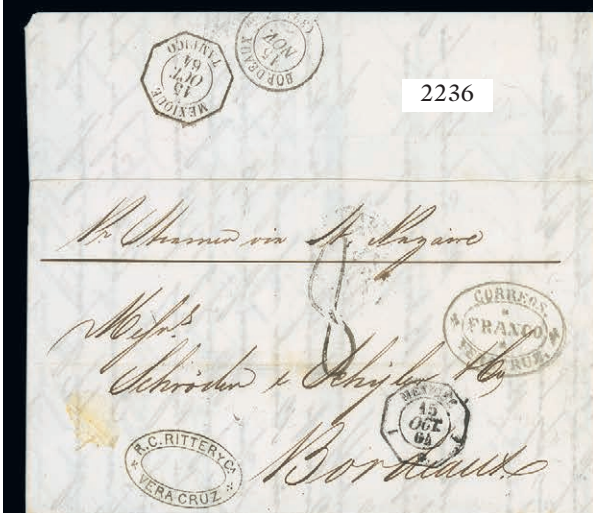 MEXIQUE
13
OCT.
64
TAMPICO
BORDEAUX
15
NOV
2236
Pr Steamer via St. Nazaire
8
Messrs
Schröder & Schÿler & Co
Bordeaux
CORREOS.
FRANCO
VERA CRUZ.
15
OCT.
64
R. C. RITTER Y Ca.
VERA-CRUZ